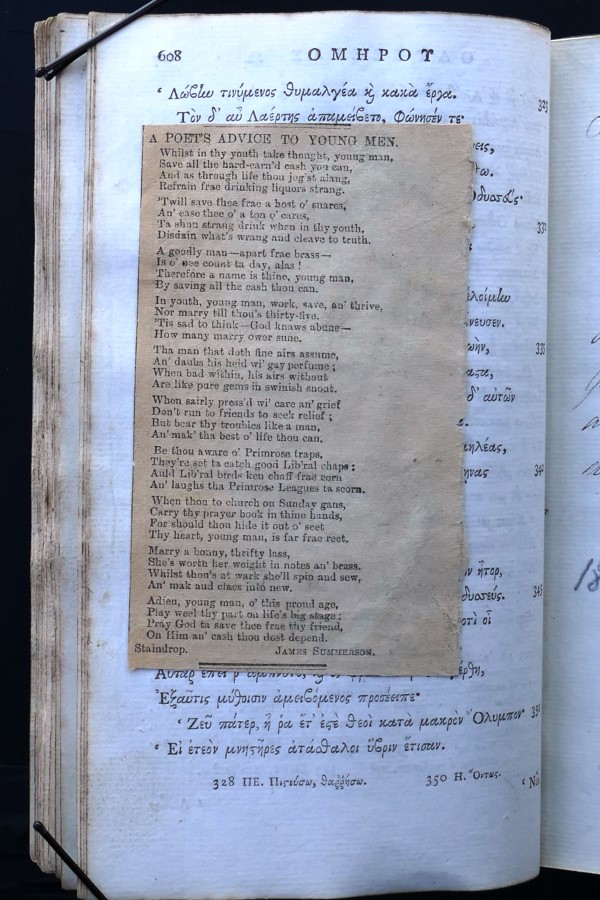 608 ΟΜΗΡΟΥ
‘ Λώβίω τινύμενος θυμαλγέα κὶ κακὰ ἔργα.
Τὸν δ’ αὖ Λαέρτης ἀπαμείβετο, Φώνησέν τε·
A POET'S ADVICE TO YOUNG MEN.
Whilst in thy youth take thought, young man,
Save all the hard-earn'd cash you can,
And as through life thou jog'st alang,
Refrain frae drinking liquors strang.
'Twill save thee frae a host o' snares,
An' ease thee o' a ton o' cares,
Ta shun strang drink when in thy youth,
Disdain what's wrang and cleave to truth.
A goodly man—apart frae brass—
Is o' nee count ta day, alas!
Therefore a name is thine, young man,
By saving all the cash thou can.
In youth, young man, work, save, an' thrive,
Nor marry till thou's thirty-five.
'Tis sad to think—God knaws abune—
How many marry ower sune.
Tha man that doth fine airs assume,
An' daubs his heid wi' gay perfume;
When bad within, his airs without
Are like pure gems in swinish snout.
When sairly press'd wi' care an' grief
Don't run to friends to seek relief;
But bear thy troubles like a man,
An' mak' tha best o' life thou can.
Be thou aware o' Primrose traps,
They're set ta catch good Lib'ral chaps;
Auld Lib'ral birds ken chaff frae corn
An' laughs tha Primrose Leagues ta scorn.
When thou to church on Sunday gans,
Carry thy prayer book in thine hands,
For should thou hide it out o' seet
Thy heart, young man, is far frae reet.
Marry a bonny, thrifty lass,
She's worth her weight in notes an' brass.
Whilst thou's at wark she'll spin and sew,
An' mak aud claes into new.
Adieu, young man, o' this proud age,
Play weel thy part on life's big stage;
Pray God ta save thee frae thy friend,
On Him an' cash thou dost depend.
Staindrop. JAMES SUMMERSON.
335
340
345
Ἐξαῦτις μύθοισιν ἀμειβόμενος προσέειπε·
‘ Ζεῦ πάτερ, ἦ ῥα ἔτ’ ἐςὲ θεοὶ κατὰ μακρὸν Ὄλυμπον· 350
‘ Εἰ ἐτεὸν μνηςῆρες ἀτάσθαλοι ὕβριν ἔτισαν.
328 ΠΕ. Πιςιύσω, θαῤῥήσω. 350 Η. Ὄντως.